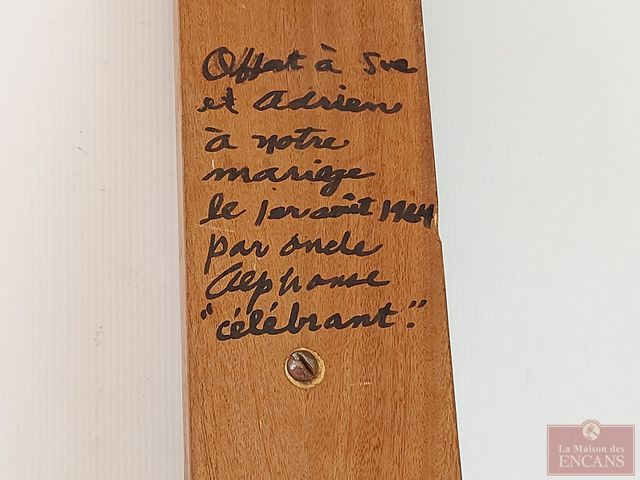 Offert à Sue
et Adrien
à notre
mariage
le 1er août
par oncle
Alphonse
"célébrant".
La Maison des
ENCANS